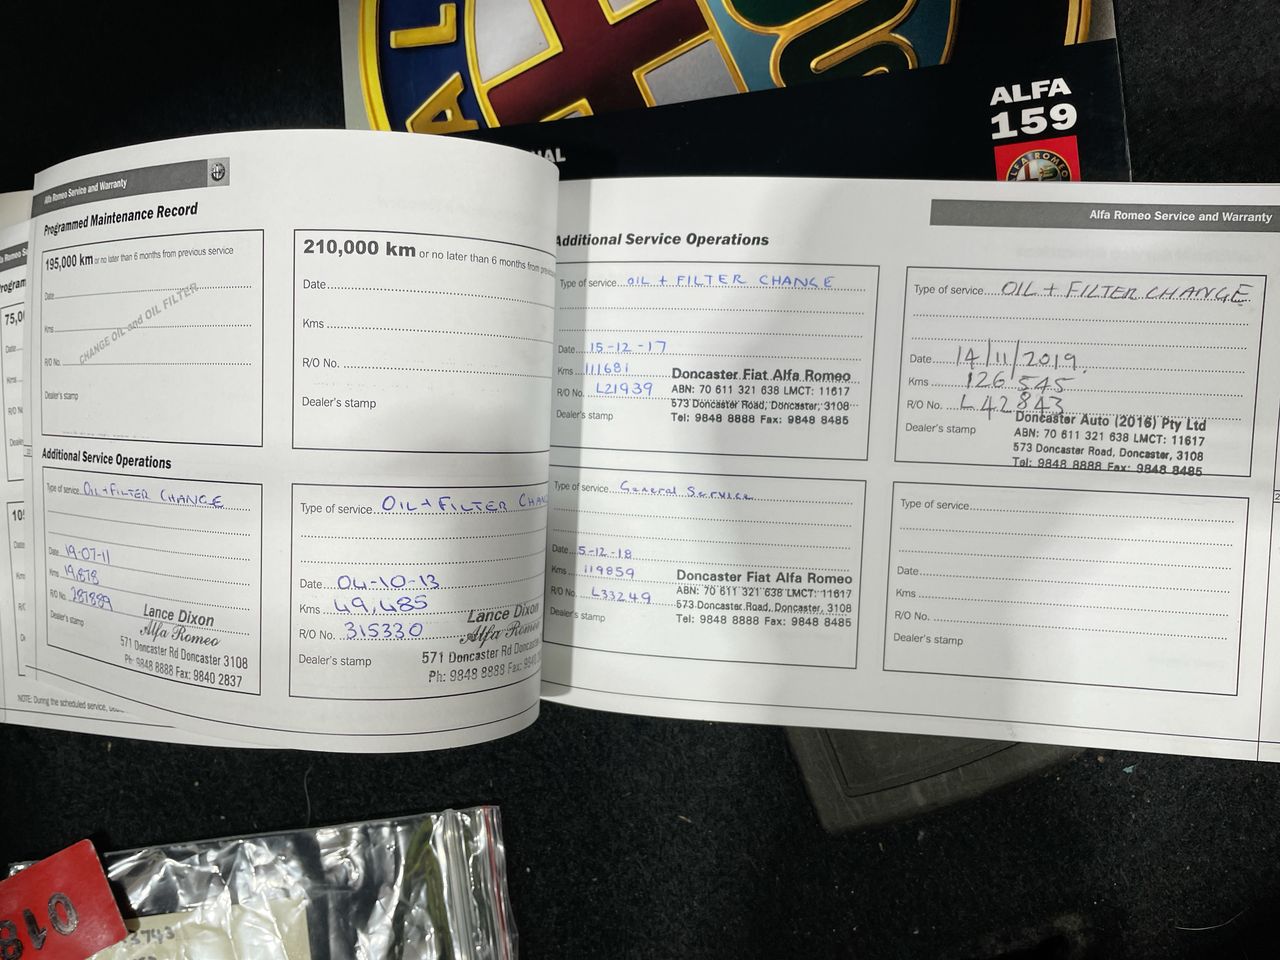 AL
ALFA
159
ALFA ROMEO
Alfa Romeo Service and Warranty
Programmed Maintenance Record
195,000 km or no later than 6 months from previous service
Date
Kms
R/O No.
CHANGE OIL and OIL FILTER
Dealer's stamp
210,000 km or no later than 6 months from previous
Date
Kms
R/O No.
Dealer's stamp
Additional Service Operations
Type of service OIL+FILTER CHANGE
Date 19-07-11
Kms 19,878
R/O No. 287889
Dealer's stamp
Lance Dixon
Alfa Romeo
571 Doncaster Rd Doncaster 3108
Ph: 9848 8888 Fax: 9840 2837
Type of service OIL+FILTER CHAN
Date 04-10-13
Kms 49,485
R/O No. 315330
Dealer's stamp
Lance Dixon
Alfa Romeo
571 Doncaster Rd Doncaster
Ph: 9848 8888 Fax: 9840
NOTE: During the scheduled service,
Alfa Romeo Service and Warranty
Additional Service Operations
Type of service OIL + FILTER CHANGE
Date 15-12-17
Kms 111681
R/O No. L21939
Dealer's stamp
Doncaster Fiat Alfa Romeo
ABN: 70 611 321 638 LMCT: 11617
573 Doncaster Road, Doncaster, 3108
Tel: 9848 8888 Fax: 9848 8485
Type of service OIL + FILTER CHANGE
Date 14/11/2019.
Kms 126 545
R/O No. L42843
Dealer's stamp
Doncaster Auto (2016) Pty Ltd
ABN: 70 611 321 638 LMCT: 11617
573 Doncaster Road, Doncaster, 3108
Tel: 9848 8888 Fax: 9848 8485
Type of service General Service
Date 5-12-18
Kms 119859
R/O No. L33249
Dealer's stamp
Doncaster Fiat Alfa Romeo
ABN: 70 611 321 638 LMCT: 11617
573 Doncaster Road, Doncaster, 3108
Tel: 9848 8888 Fax: 9848 8485
Type of service
Date
Kms
R/O No.
Dealer's stamp
018
3743